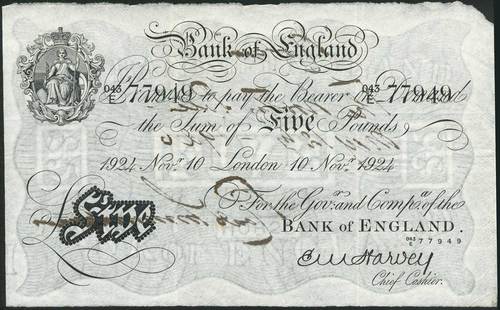 Bank of England
043/E 77949 to pay the Bearer on Demand 043/E 77949
the Sum of Five Pounds
1924 Novr. 10 London 10 Novr. 1924
For the Govr. and Compa. of the
£Five
BANK OF ENGLAND.
043/E 77949
C M Harvey
Chief Cashier.